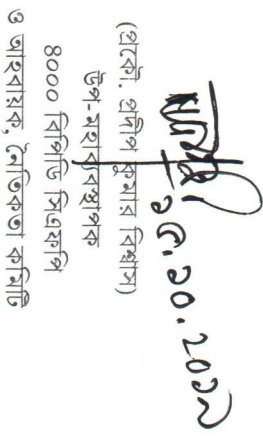 ১৫.১০.২০১৯
(প্রকৌ. প্রদিপ কুমার বিশ্বাস)
উপ-মহাব্যবস্থাপক
৪০০০ বিপিডি সিএফপি
ও আহবায়ক, নৈতিকতা কমিটি